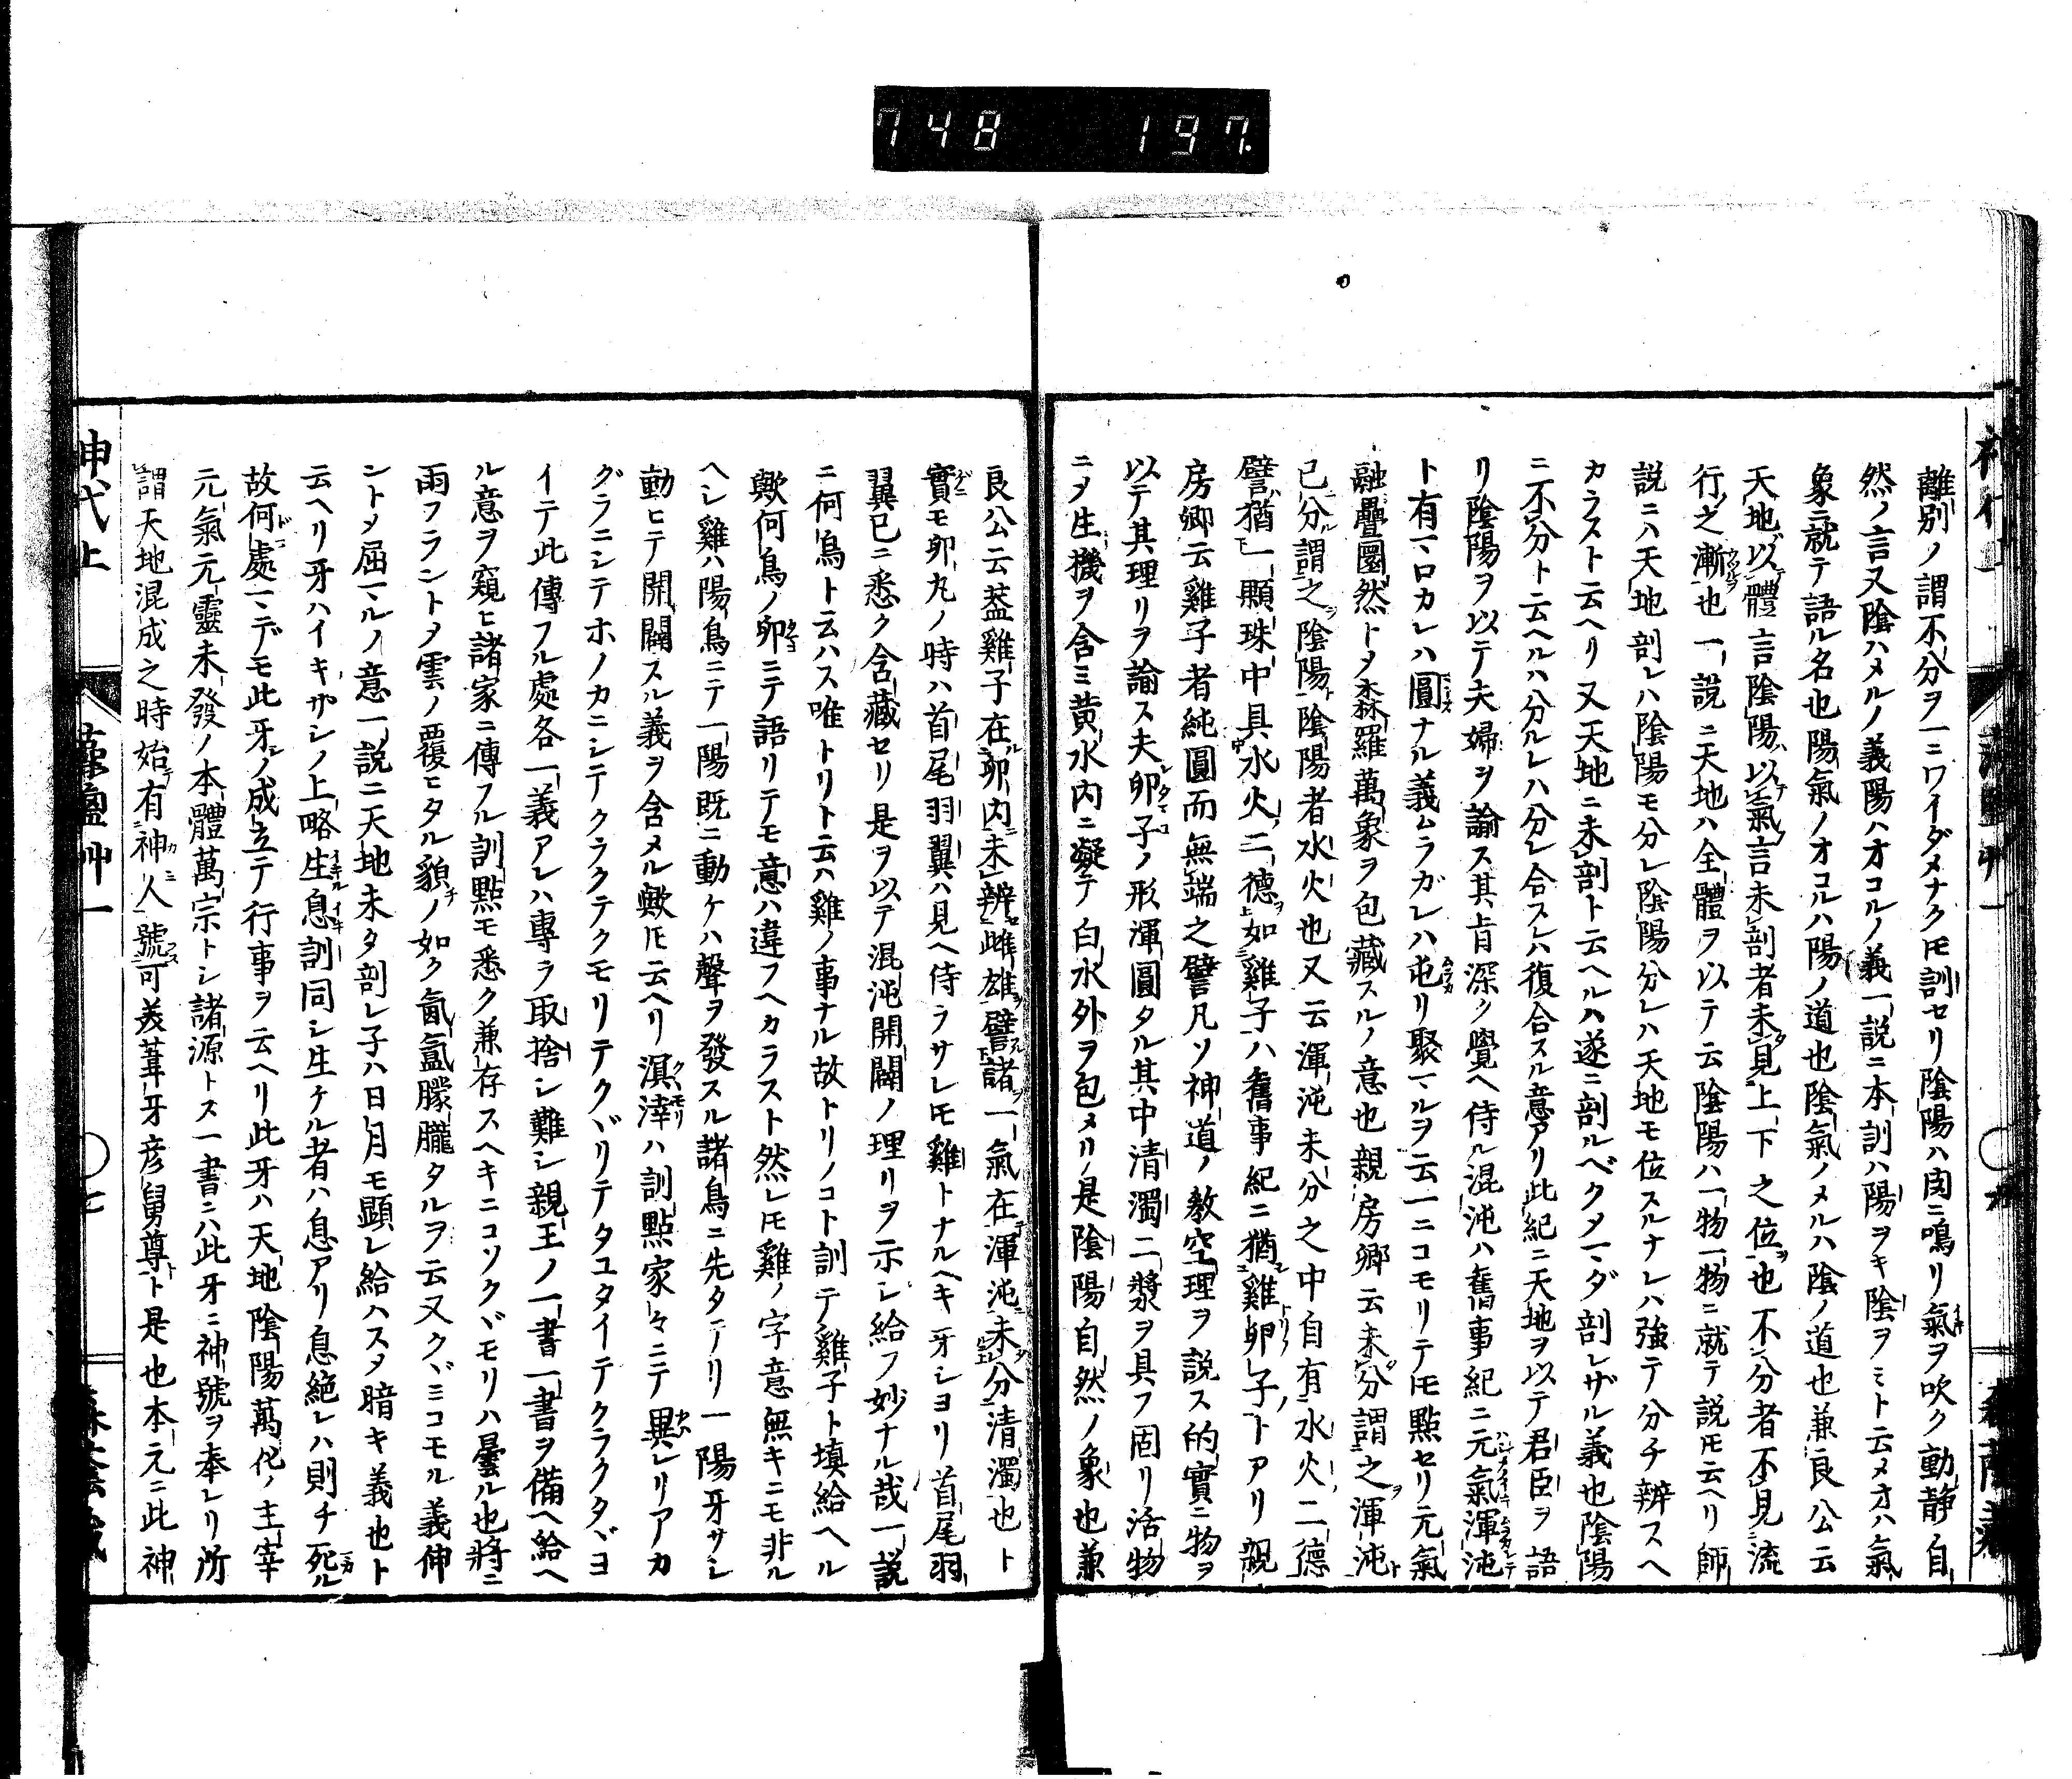 748 197.
離別ノ謂不分ヲ一ニワイダメナクトモ訓セリ陰陽ハ内ニ鳴リ氣ヲ吹ク動静自
然ノ言又陰ハメルノ義陽ハオコルノ義一説ニ本訓ハ陽ヲキ陰ヲミト云メオハ氣
象ニ就テ語ル名也陽氣ノオコルハ陽ノ道也陰氣ノメルハ陰ノ道也兼良公云
天地以體言陰陽以氣言未剖者未見上下之位也不分者不見流
行之漸也一説ニ天地ハ全體ヲ以テ云陰陽ハ一物一物ニ就テ説トモ云ヘリ師
説ニハ天地剖レハ陰陽モ分レ陰陽分レハ天地モ位スルナレハ強テ分チ辨スヘ
カラスト云ヘリ又天地ニ未剖ト云ヘルハ遂ニ剖ルベクメマダ剖レザル義也陰陽
ニ不分ト云ヘルハ分ルレハ分レ合スレハ復合スル意アリ此紀ニ天地ヲ以テ君臣ヲ語
リ陰陽ヲ以テ夫婦ヲ諭ス其旨深ク覺ヘ侍ル混沌ハ舊事紀ニ元氣渾沌
ト有マロカレハ圓ナル義ムラガレハ屯リ聚マルヲ云一ニコモリテトモ點セリ元氣
融疊圜然トメ森羅萬象ヲ包藏スルノ意也親房卿云未分謂之渾沌
已分謂之陰陽陰陽者水火也又云渾沌未分之中自有水火二德
譬猶一顆珠中具水火二德如雞子ハ舊事紀ニ猶雞卵子トアリ親
房卿云雞子者純圓而無端之譬凡ソ神道ノ教空理ヲ説ス的實ニ物ヲ
以テ其理リヲ諭ス夫卵子ノ形渾圓タル其中清濁二漿ヲ具フ固リ活物
ニメ生機ヲ含ミ黄水内ニ凝テ白水外ヲ包メリ是陰陽自然ノ象也兼
良公云葢雞子在卵内未辨雌雄譬諸一氣在渾沌未分清濁也ト
實モ卵丸ノ時ハ首尾羽翼ハ見ヘ侍ラサレトモ雞トナルヘキ牙シヨリ首尾羽
翼已ニ悉ク含藏セリ是ヲ以テ混沌開闢ノ理リヲ示シ給フ妙ナル哉一説
ニ何鳥ト云ハス唯トリト云ハ雞ノ事ナル故トリノコト訓テ雞子ト填給ヘル
歟何鳥ノ卵ニテ語リテモ意ハ違フヘカラスト然レトモ雞ノ字意無キニモ非ル
ヘシ雞ハ陽鳥ニテ一陽既ニ動ケハ聲ヲ發スル諸鳥ニ先タテリ一陽牙サシ
動ヒテ開闢スル義ヲ含メル歟トモ云ヘリ溟涬ハ訓點家々ニテ異レリアカ
グラニシテホノカニシテクラクテクモリテクヾリテタユタイテクラクタヾヨ
イテ此傳フル處各一義アレハ專ラ取捨シ難シ親王ノ一書一書ヲ備ヘ給ヘ
ル意ヲ窺ヒ諸家ニ傳フル訓點モ悉ク兼存スヘキニコソクヾモリハ曇ル也將ニ
雨フラントメ雲ノ覆ヒタル貌ノ如ク氤氳朦朧タルヲ云又クヾミコモル義伸
ントメ屈マルノ意一説ニ天地未タ剖レ子ハ日月モ顕レ給ハスメ暗キ義也ト
云ヘリ牙ハイキザシノ上略生息訓同シ生チル者ハ息アリ息絶レハ則チ死ル
故何處マデモ此牙ノ成立テ行事ヲ云ヘリ此牙ハ天地陰陽萬化ノ主宰
元氣元靈未發ノ本體萬宗トシ諸源トス一書ニハ此牙ニ神號ヲ奉レリ所
謂天地混成之時始有神人號可美葦牙彦舅尊ト是也本元ニ此神
神代上